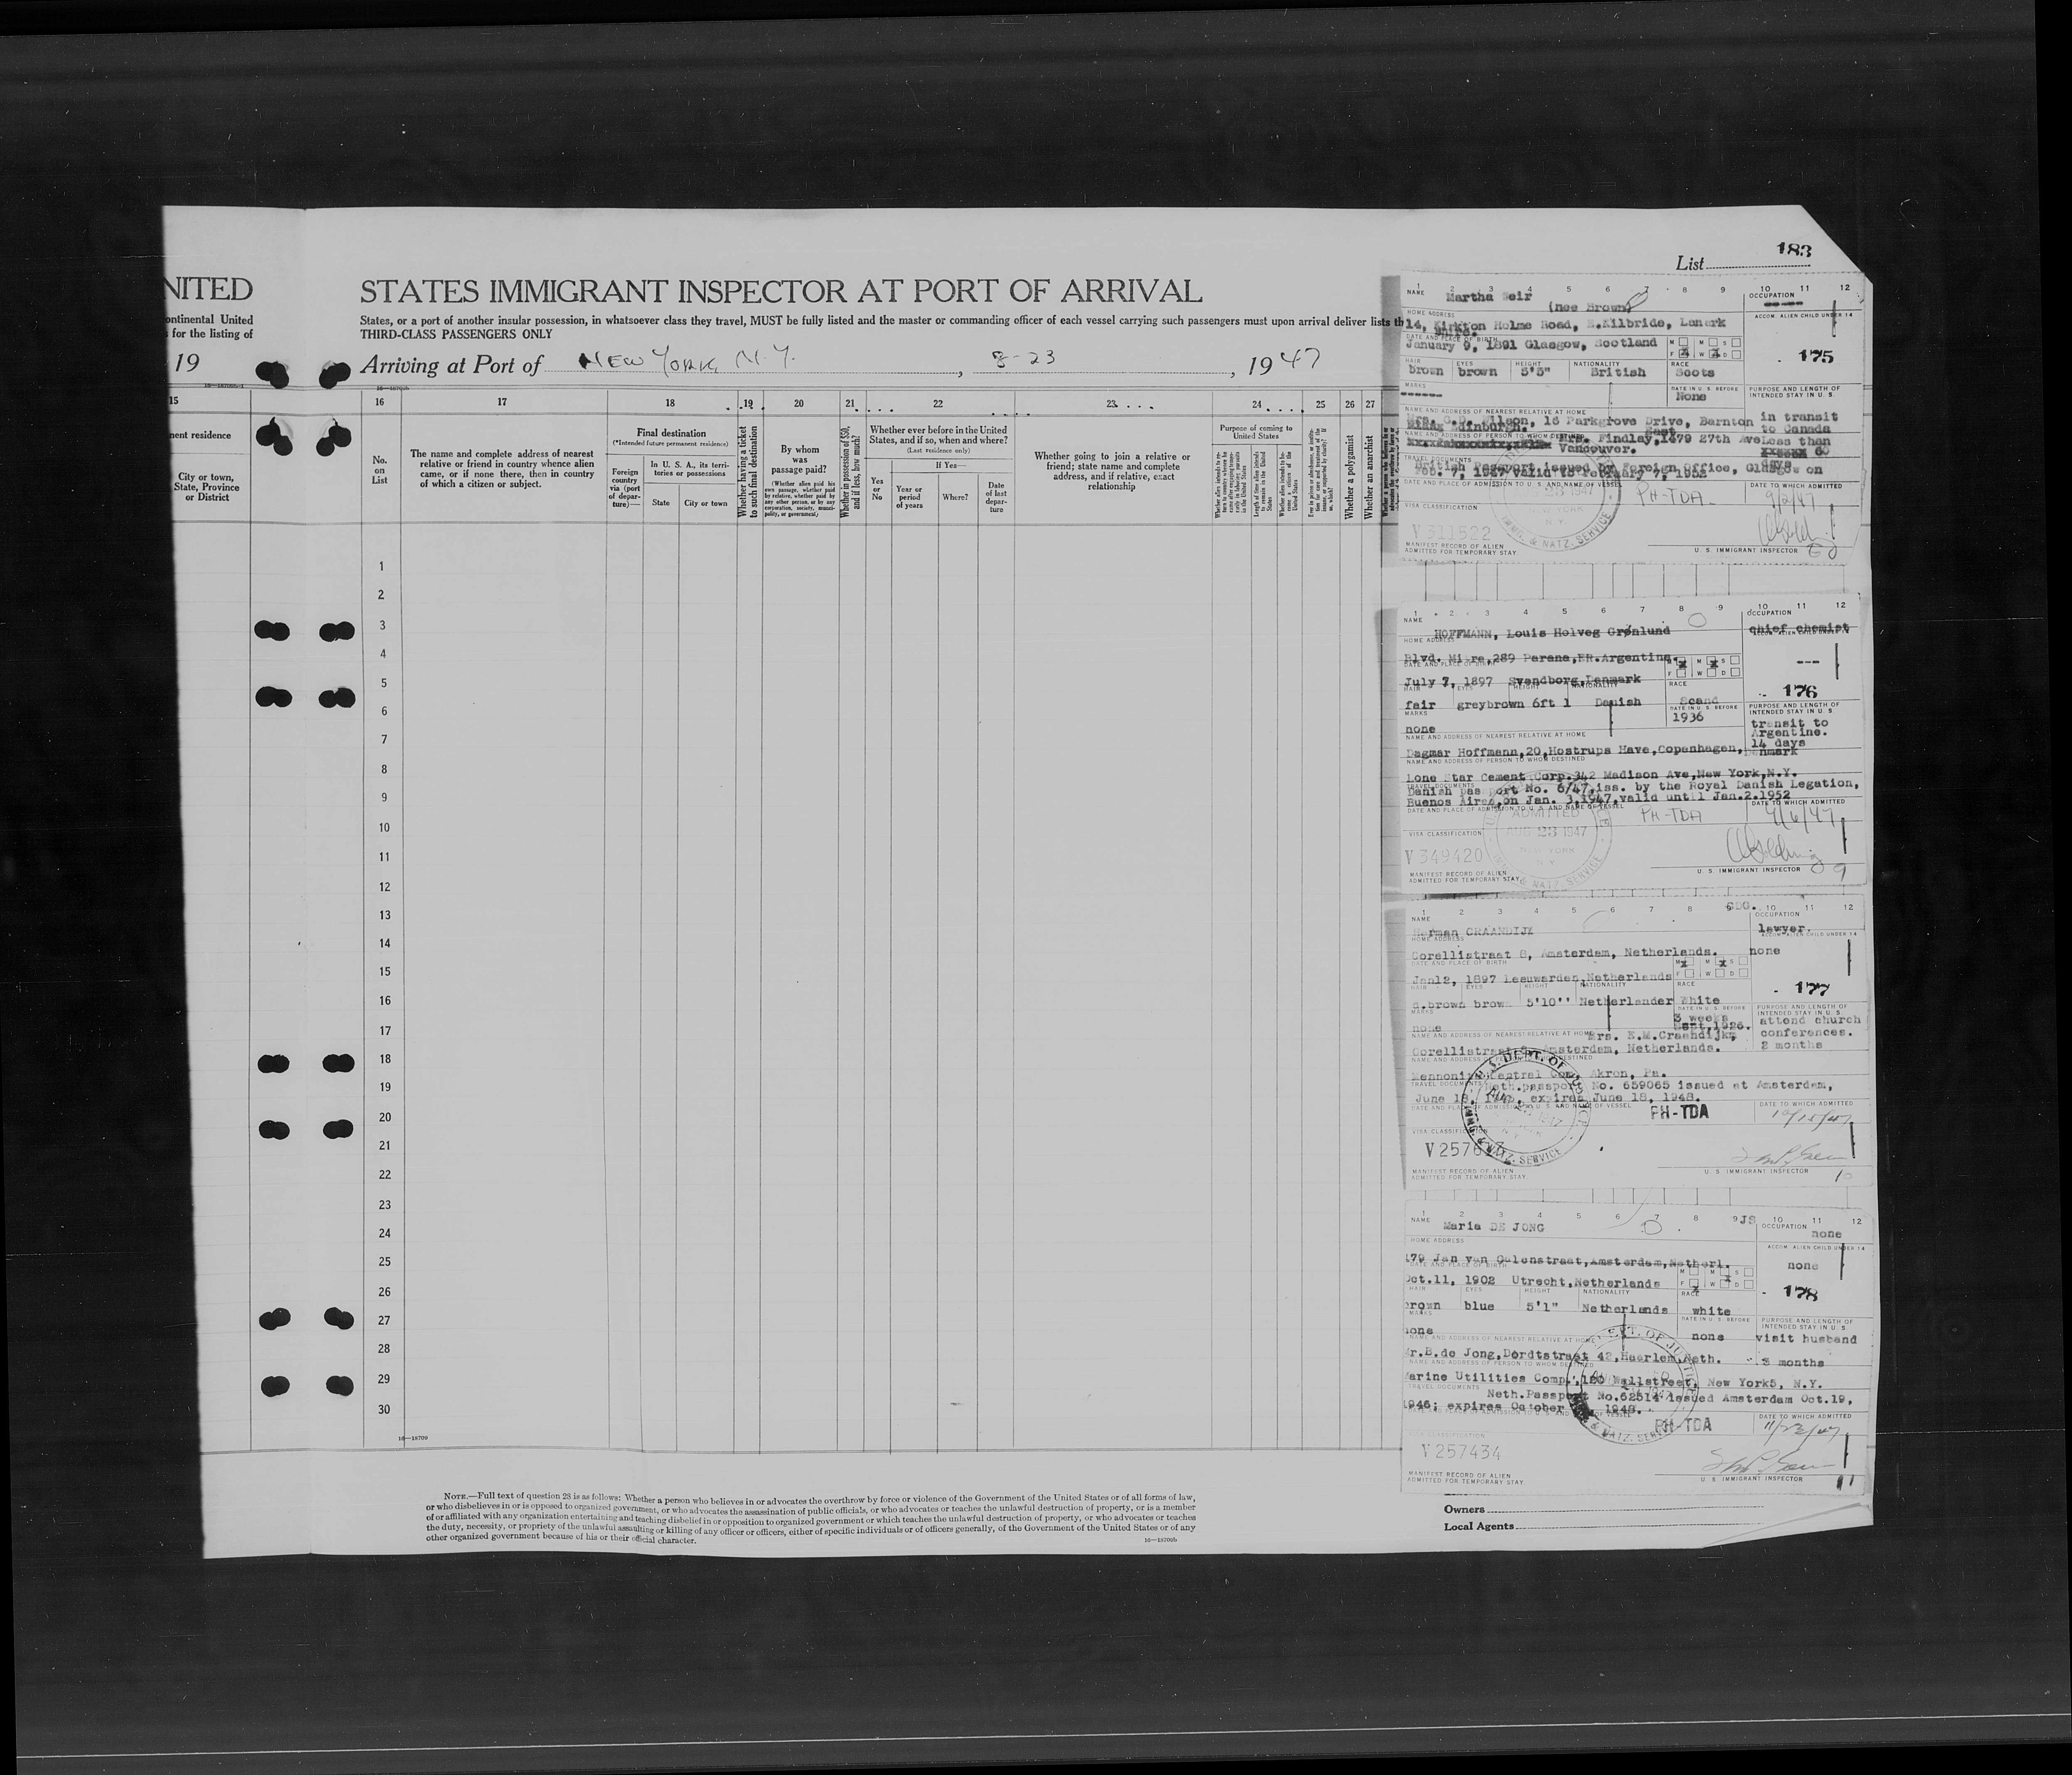 183
List
NITED
STATES IMMIGRANT INSPECTOR AT PORT OF ARRIVAL
ontinental United
for the listing of
States, or a port of another insular possession, in whatsoever class they travel, MUST be fully listed and the master or commanding officer of each vessel carrying such passengers must upon arrival deliver lists th
THIRD-CLASS PASSENGERS ONLY
19
Arriving at Port of NEW YORK, N.Y. , 8-23 , 1947
15
16 17 18 19 20 21 22 23 24 25 26 27
nent residence
City or town, State, Province or District
No. on List
The name and complete address of nearest relative or friend in country whence alien came, or if none there, then in country of which a citizen or subject.
Final destination
(*Intended future permanent residence)
Foreign country via (port of departure)—
In U. S. A., its territories or possessions
State
City or town
Whether having a ticket to such final destination
By whom was passage paid?
(Whether alien paid his own passage, whether paid by relative, whether paid by any other person, or by any corporation, society, municipality, or government)
Whether in possession of $50, and if less, how much?
Whether ever before in the United States, and if so, when and where?
(Last residence only)
Yes or No
If Yes—
Year or period of years
Where?
Date of last departure
Whether going to join a relative or friend; state name and complete address, and if relative, exact relationship
Purpose of coming to United States
Whether a polygamist
Whether an anarchist
1
2
3
4
5
6
7
8
9
10
11
12
13
14
15
16
17
18
19
20
21
22
23
24
25
26
27
28
29
30
16—18709
NOTE.—Full text of question 28 is as follows: Whether a person who believes in or advocates the overthrow by force or violence of the Government of the United States or of all forms of law,
or who disbelieves in or is opposed to organized government, or who advocates the assassination of public officials, or who advocates or teaches the unlawful destruction of property, or is a member
of or affiliated with any organization entertaining and teaching disbelief in or opposition to organized government or which teaches the unlawful destruction of property, or who advocates or teaches
the duty, necessity, or propriety of the unlawful assaulting or killing of any officer or officers, either of specific individuals or of officers generally, of the Government of the United States or of any
other organized government because of his or their official character.
16—18709b
1 2 3 4 5 6 7 8 9 10 11 12
NAME Martha Weir (nee Brown)
OCCUPATION
HOME ADDRESS
ACCOM. ALIEN CHILD UNDER 14
14, Kirkton Holme Road, E.Kilbride, Lanark
shire.
DATE AND PLACE OF BIRTH
January 9, 1891 Glasgow, Scotland
175
HAIR EYES HEIGHT NATIONALITY RACE
brown brown 5'5" British Scots
MARKS
DATE IN U. S. BEFORE
None
PURPOSE AND LENGTH OF INTENDED STAY IN U. S.
in transit to Canada
Less than 60 days
NAME AND ADDRESS OF NEAREST RELATIVE AT HOME
Wilson, 18 Parkgrove Drive, Barnton
Edinburgh.
Mrs. Findlay, 1479 27th Ave East
Vancouver.
TRAVEL DOCUMENTS
British Passport issued by Foreign Office, Glasgow on
Feb. 7, 1947 valid to February 7, 1952
DATE AND PLACE OF ADMISSION TO U. S. AND NAME OF VESSEL
DATE TO WHICH ADMITTED
PH-TDA
9/2/47
VISA CLASSIFICATION
V 311522
IMMI. & NATZ. SERVICE
MANIFEST RECORD OF ALIEN
ADMITTED FOR TEMPORARY STAY.
U. S. IMMIGRANT INSPECTOR
1 2 3 4 5 6 7 8 9 10 11 12
NAME
HOFFMANN, Louis Holveg Grønlund
OCCUPATION
chief chemist
HOME ADDRESS
Blvd. Mitre,289 Parana,ER.Argentina.
DATE AND PLACE OF BIRTH
July 7, 1897 Svendborg,Denmark
176
HAIR EYES HEIGHT NATIONALITY RACE
fair greybrown 6ft 1 Danish Scand
MARKS
none
DATE IN U. S. BEFORE
1936
PURPOSE AND LENGTH OF INTENDED STAY IN U. S.
transit to
Argentine.
14 days
NAME AND ADDRESS OF NEAREST RELATIVE AT HOME
Dagmar Hoffmann,20,Hostrups Have,Copenhagen,Denmark
NAME AND ADDRESS OF PERSON TO WHOM DESTINED
Lone Star Cement Corp.342 Madison Ave,New York,N.Y.
TRAVEL DOCUMENTS
Danish passport No. 6/47,iss. by the Royal Danish Legation,
Buenos Aires,on Jan. 3,1947,valid until Jan.2.1952
DATE AND PLACE OF ADMISSION TO U. S. AND NAME OF VESSEL
DATE TO WHICH ADMITTED
ADMITTED
AUG 23 1947
NEW YORK
N.Y.
PH-TDA
9/6/47
VISA CLASSIFICATION
V 349420
MANIFEST RECORD OF ALIEN
ADMITTED FOR TEMPORARY STAY.
U. S. IMMIGRANT INSPECTOR
9
1 2 3 4 5 6 7 8 9 10 11 12
NAME
Herman CRAANDIJK
OCCUPATION
lawyer.
HOME ADDRESS
ACCOM. ALIEN CHILD UNDER 14
Corellistraat 8, Amsterdam, Netherlands.
none
DATE AND PLACE OF BIRTH
Jan12, 1897 Leeuwarden,Netherlands
177
HAIR EYES HEIGHT NATIONALITY RACE
d.brown brown 5'10'' Netherlander White
MARKS
none
DATE IN U. S. BEFORE
3 weeks
Sept.1926.
PURPOSE AND LENGTH OF INTENDED STAY IN U. S.
attend church
conferences.
2 months
NAME AND ADDRESS OF NEAREST RELATIVE AT HOME
Mrs. E.M.Craandijk,
Corellistraat 8, Amsterdam, Netherlands.
Mennonite Central Com. Akron, Pa.
TRAVEL DOCUMENTS
Neth.passport No. 659065 issued at Amsterdam,
June 18, expires June 18, 1948.
PH-TDA
DATE TO WHICH ADMITTED
10/15/47
VISA CLASSIFICATION
V 2576
MANIFEST RECORD OF ALIEN
ADMITTED FOR TEMPORARY STAY.
U. S. IMMIGRANT INSPECTOR
10
1 2 3 4 5 6 7 8 9 JS 10 11 12
NAME Maria DE JONG
OCCUPATION
none
HOME ADDRESS
ACCOM. ALIEN CHILD UNDER 14
179 Jan van Galenstraat,Amsterdam,Netherl.
none
DATE AND PLACE OF BIRTH
Oct.11, 1902 Utrecht,Netherlands
178
HAIR EYES HEIGHT NATIONALITY RACE
brown blue 5'1" Netherlands white
MARKS
none
DATE IN U. S. BEFORE
none
PURPOSE AND LENGTH OF INTENDED STAY IN U. S.
visit husband
3 months
NAME AND ADDRESS OF NEAREST RELATIVE AT HOME
Mr.B.de Jong,Dordtstraat 42,Haarlem,Neth.
NAME AND ADDRESS OF PERSON TO WHOM DESTINED
Marine Utilities Comp., 120 Wallstreet, New York5, N.Y.
TRAVEL DOCUMENTS
Neth.Passport No.62514 issued Amsterdam Oct.19,
1946; expires October 1948.
PH-TDA
DATE TO WHICH ADMITTED
11/22/47
VISA CLASSIFICATION
V 257434
MANIFEST RECORD OF ALIEN
ADMITTED FOR TEMPORARY STAY.
U. S. IMMIGRANT INSPECTOR
11
Owners
Local Agents